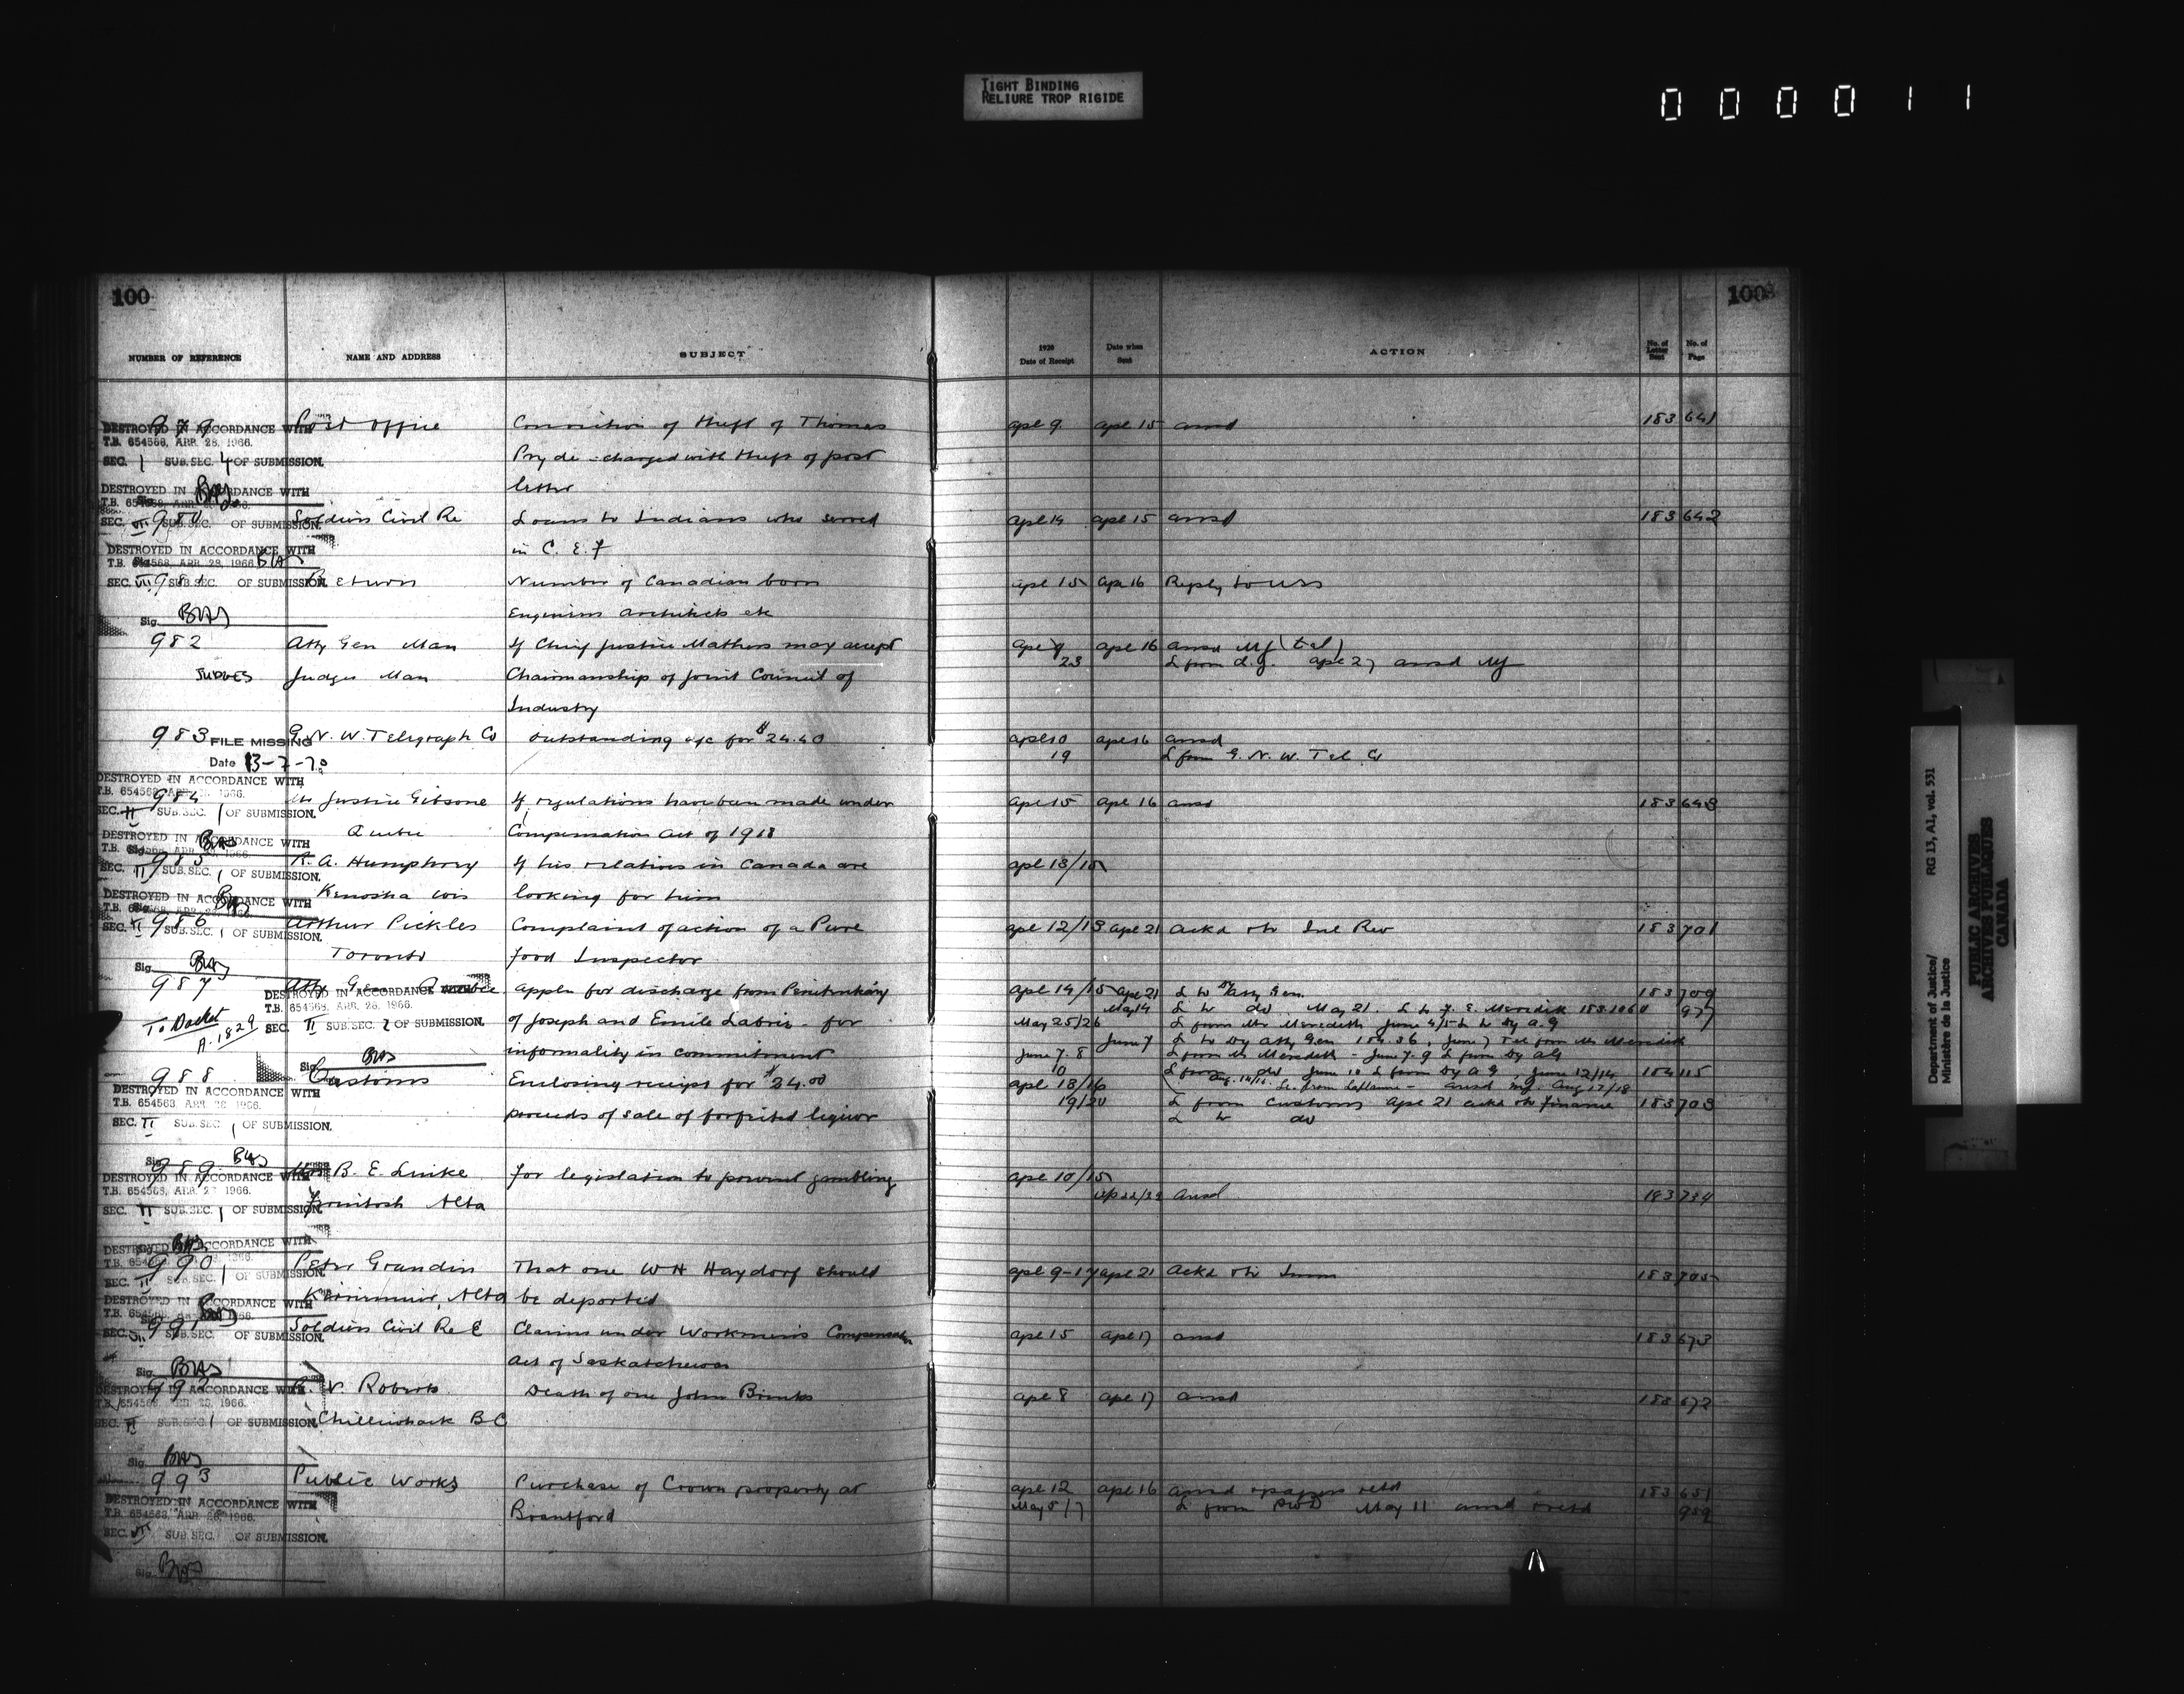 TIGHT BINDING
RELIURE TROP RIGIDE
000011
100
100
NUMBER OF REFERENCE NAME AND ADDRESS SUBJECT 1920 Date of Receipt Date when Sent ACTION No. of Letter Sent No. of Page
979 Post Office Conviction of theft of Thomas apl 9 apl 15 ansd 183 641
DESTROYED IN ACCORDANCE WITH
T.B. 654568, APR. 28, 1966.
SEC. 1 SUB. SEC. 4 OF SUBMISSION.
Pryde - charged with theft of post
letter
DESTROYED IN ACCORDANCE WITH
980 Soldiers Civil Re Loans to Indians who served apl 14 apl 15 ansd 183 642
SEC. VII SUB. SEC. OF SUBMISSION.
in C. E. F
DESTROYED IN ACCORDANCE WITH
T.B. 654568, APR. 28, 1966.
981 Return Number of Canadian born apl 15 apl 16 Reply to
SEC. VII SUB. SEC. OF SUBMISSION.
Engineers architects etc
Sig.
982 Atty Gen Man If Chief Justice Mathers may accept apl 16 ansd Mf (tel)
23 L from d.g. apl 27 ansd Mf
JUDGES Judges Man Chairmanship of Joint Council of
Industry
983 G. N. W. Telegraph Co outstanding a/c for $24.40 apl 10 apl 16 ansd
FILE MISSING
19 L from G. N. W. Tel Co
Date 13-7-70
DESTROYED IN ACCORDANCE WITH
984 Mr Justice Gibsone If regulations have been made under apl 15 apl 16 ansd 183 648
SEC. II SUB. SEC. 1 OF SUBMISSION.
Quebec Compensation Act of 1918
DESTROYED IN ACCORDANCE WITH
985 R. A. Humphrey If his relatives in Canada are apl 13/15
SEC. II SUB. SEC. 1 OF SUBMISSION.
Kenosha Wis looking for him
DESTROYED IN ACCORDANCE WITH
986 Arthur Pickles Complaint of action of a Pure apl 12/13 apl 21 ackd Inl Rev 183 701
SEC. II SUB. SEC. 1 OF SUBMISSION.
Toronto food Inspector
Sig.
987 Atty Gen Quebec appln for discharge from Penitentiary apl 14/15 apl 21 L to Dy Atty Gen. 183 709
DESTROYED IN ACCORDANCE WITH
T.B. 654568, APR. 28, 1966.
May 14 L to do May 21. L to F. E. Meredith 183.1060 977
To Docket A. 1829
SEC. II SUB. SEC. 2 OF SUBMISSION.
of Joseph and Emile Labrie - for May 25/26 L from Mr Meredith June 4/5 L to Dy A.G
June 7 L to Dy Atty Gen 184.36. June 7 Tel from Mr Meredith
informality in commitment June 7.8 L from Mr Meredith - June 7.9 L from Dy AG
Sig.
10 L from do June 10 L from Dy A G June 12/14 184 115
988 Customs Enclosing receipt for $24.00 apl 13/16
DESTROYED IN ACCORDANCE WITH
T.B. 654568, APR. 28, 1966.
19/20 L from Customs apl 21 ackd Finance 183 703
proceeds of sale of forfeited liquor L to do
SEC. II SUB. SEC. 1 OF SUBMISSION.
Sig.
989 B. E. Luike for legislation to prevent gambling apl 10/15
DESTROYED IN ACCORDANCE WITH
T.B. 654568, APR. 28, 1966.
ansd 183 734
SEC. II SUB. SEC. 1 OF SUBMISSION.
Alta
DESTROYED IN ACCORDANCE WITH
990 Peter Grandin That one W H Haydorf should apl 9-17 apl 21 Ackd Imm 183 705
SEC. II SUB. SEC. 1 OF SUBMISSION.
Alta be deported
DESTROYED IN ACCORDANCE WITH
991 Soldiers Civil Re E Claims under Workmens Compensation apl 15 apl 17 ansd 183 673
SEC. VII SUB. SEC. OF SUBMISSION.
Act of Saskatchewan
Sig.
992 R. V. Roberts Death of one John apl 8 apl 17 ansd 183 672
DESTROYED IN ACCORDANCE WITH
SEC. II SUB. SEC. 1 OF SUBMISSION.
Chilliwack B C
Sig.
993 Public Works Purchase of Crown property at apl 12 apl 16 ansd & papers retd 183 651
DESTROYED IN ACCORDANCE WITH
T.B. 654568, APR. 28, 1966.
Brantford May 5/7 L from PWD May 11 ansd & retd 959
SEC. VII SUB. SEC. OF SUBMISSION.
Sig.
Department of Justice/
Ministère de la Justice
RG 13, A1, vol. 531
PUBLIC ARCHIVES
ARCHIVES PUBLIQUES
CANADA